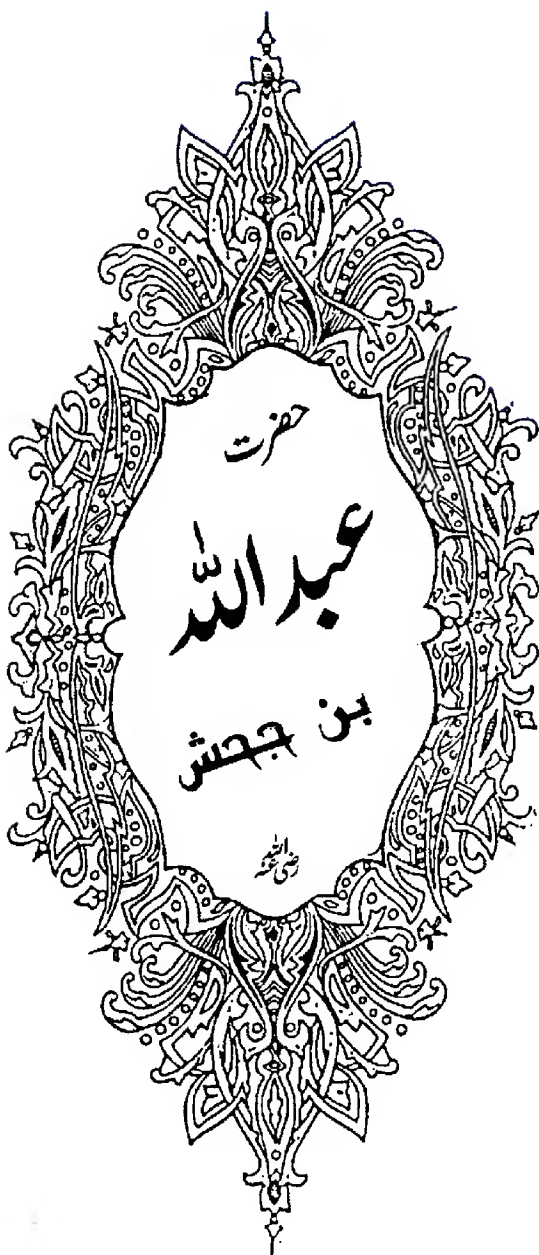 حضرت
عبد اللہ
بن جحش
رضی اللہ عنہ